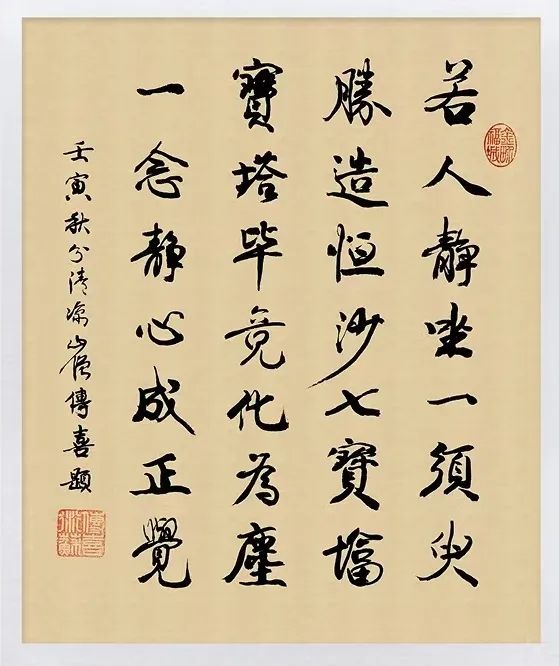 若人靜坐一須臾
勝造恒沙七寶塔
寶塔毕竟化為塵
一念靜心成正覺
壬寅秋分清凉山僧傳喜題